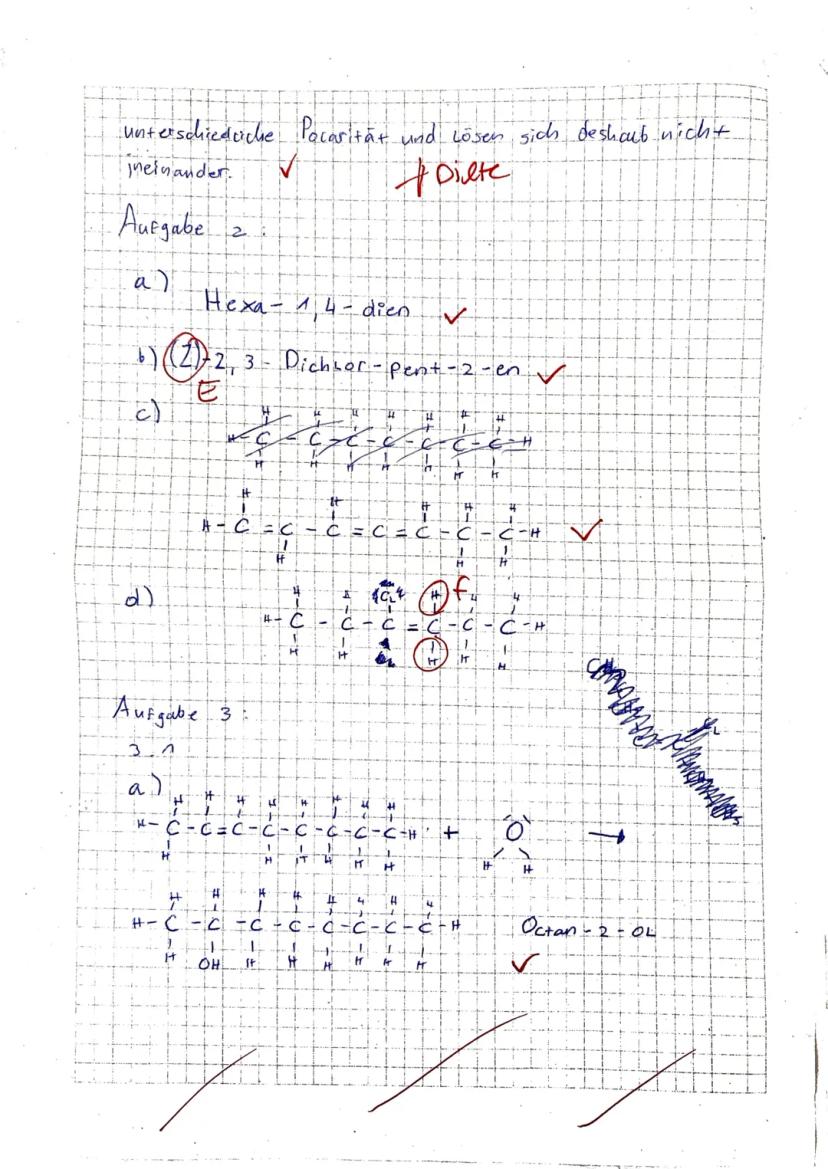 unterschiedliche Polarität und lösen sich deshalb nicht
ineinander. ✓
Aufgabe 2:
a)
Hexa-1,4-dien ✓
b) (Z)-2,3-Dichlor-pent-2-en ✓
E
c)
H H H H H H H
H-C-C-C-C-C-C-C-H
H H H H H H
H H H H H
H-C=C-C=C=C-C-C-H ✓
H H H
d)
H H Cl H f H H
H-C-C-C=C-C-C-H
H H H H H
Aufgabe 3:
3.1
a)
H H H H H H H H
H-C-C=C-C-C-C-C-C-H + O →
H H H H H H H H
H H H H H H H H
H-C-C-C-C-C-C-C-C-H Octan-2-ol
H OH H H H H H H ✓